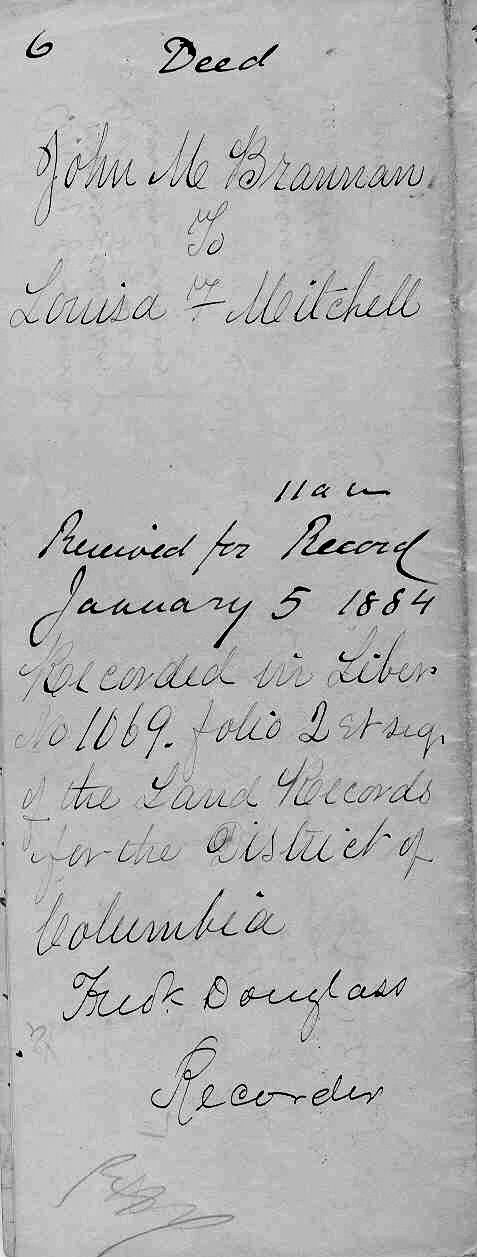 6 Deed
John M Brannan
To
Louisa F Mitchell
11 a m
Received for Record
January 5 1884
Recorded in Liber
No 1069. folio 2 et seq.
of the Land Records
for the District of
Columbia
Fredk Douglass
Recorder